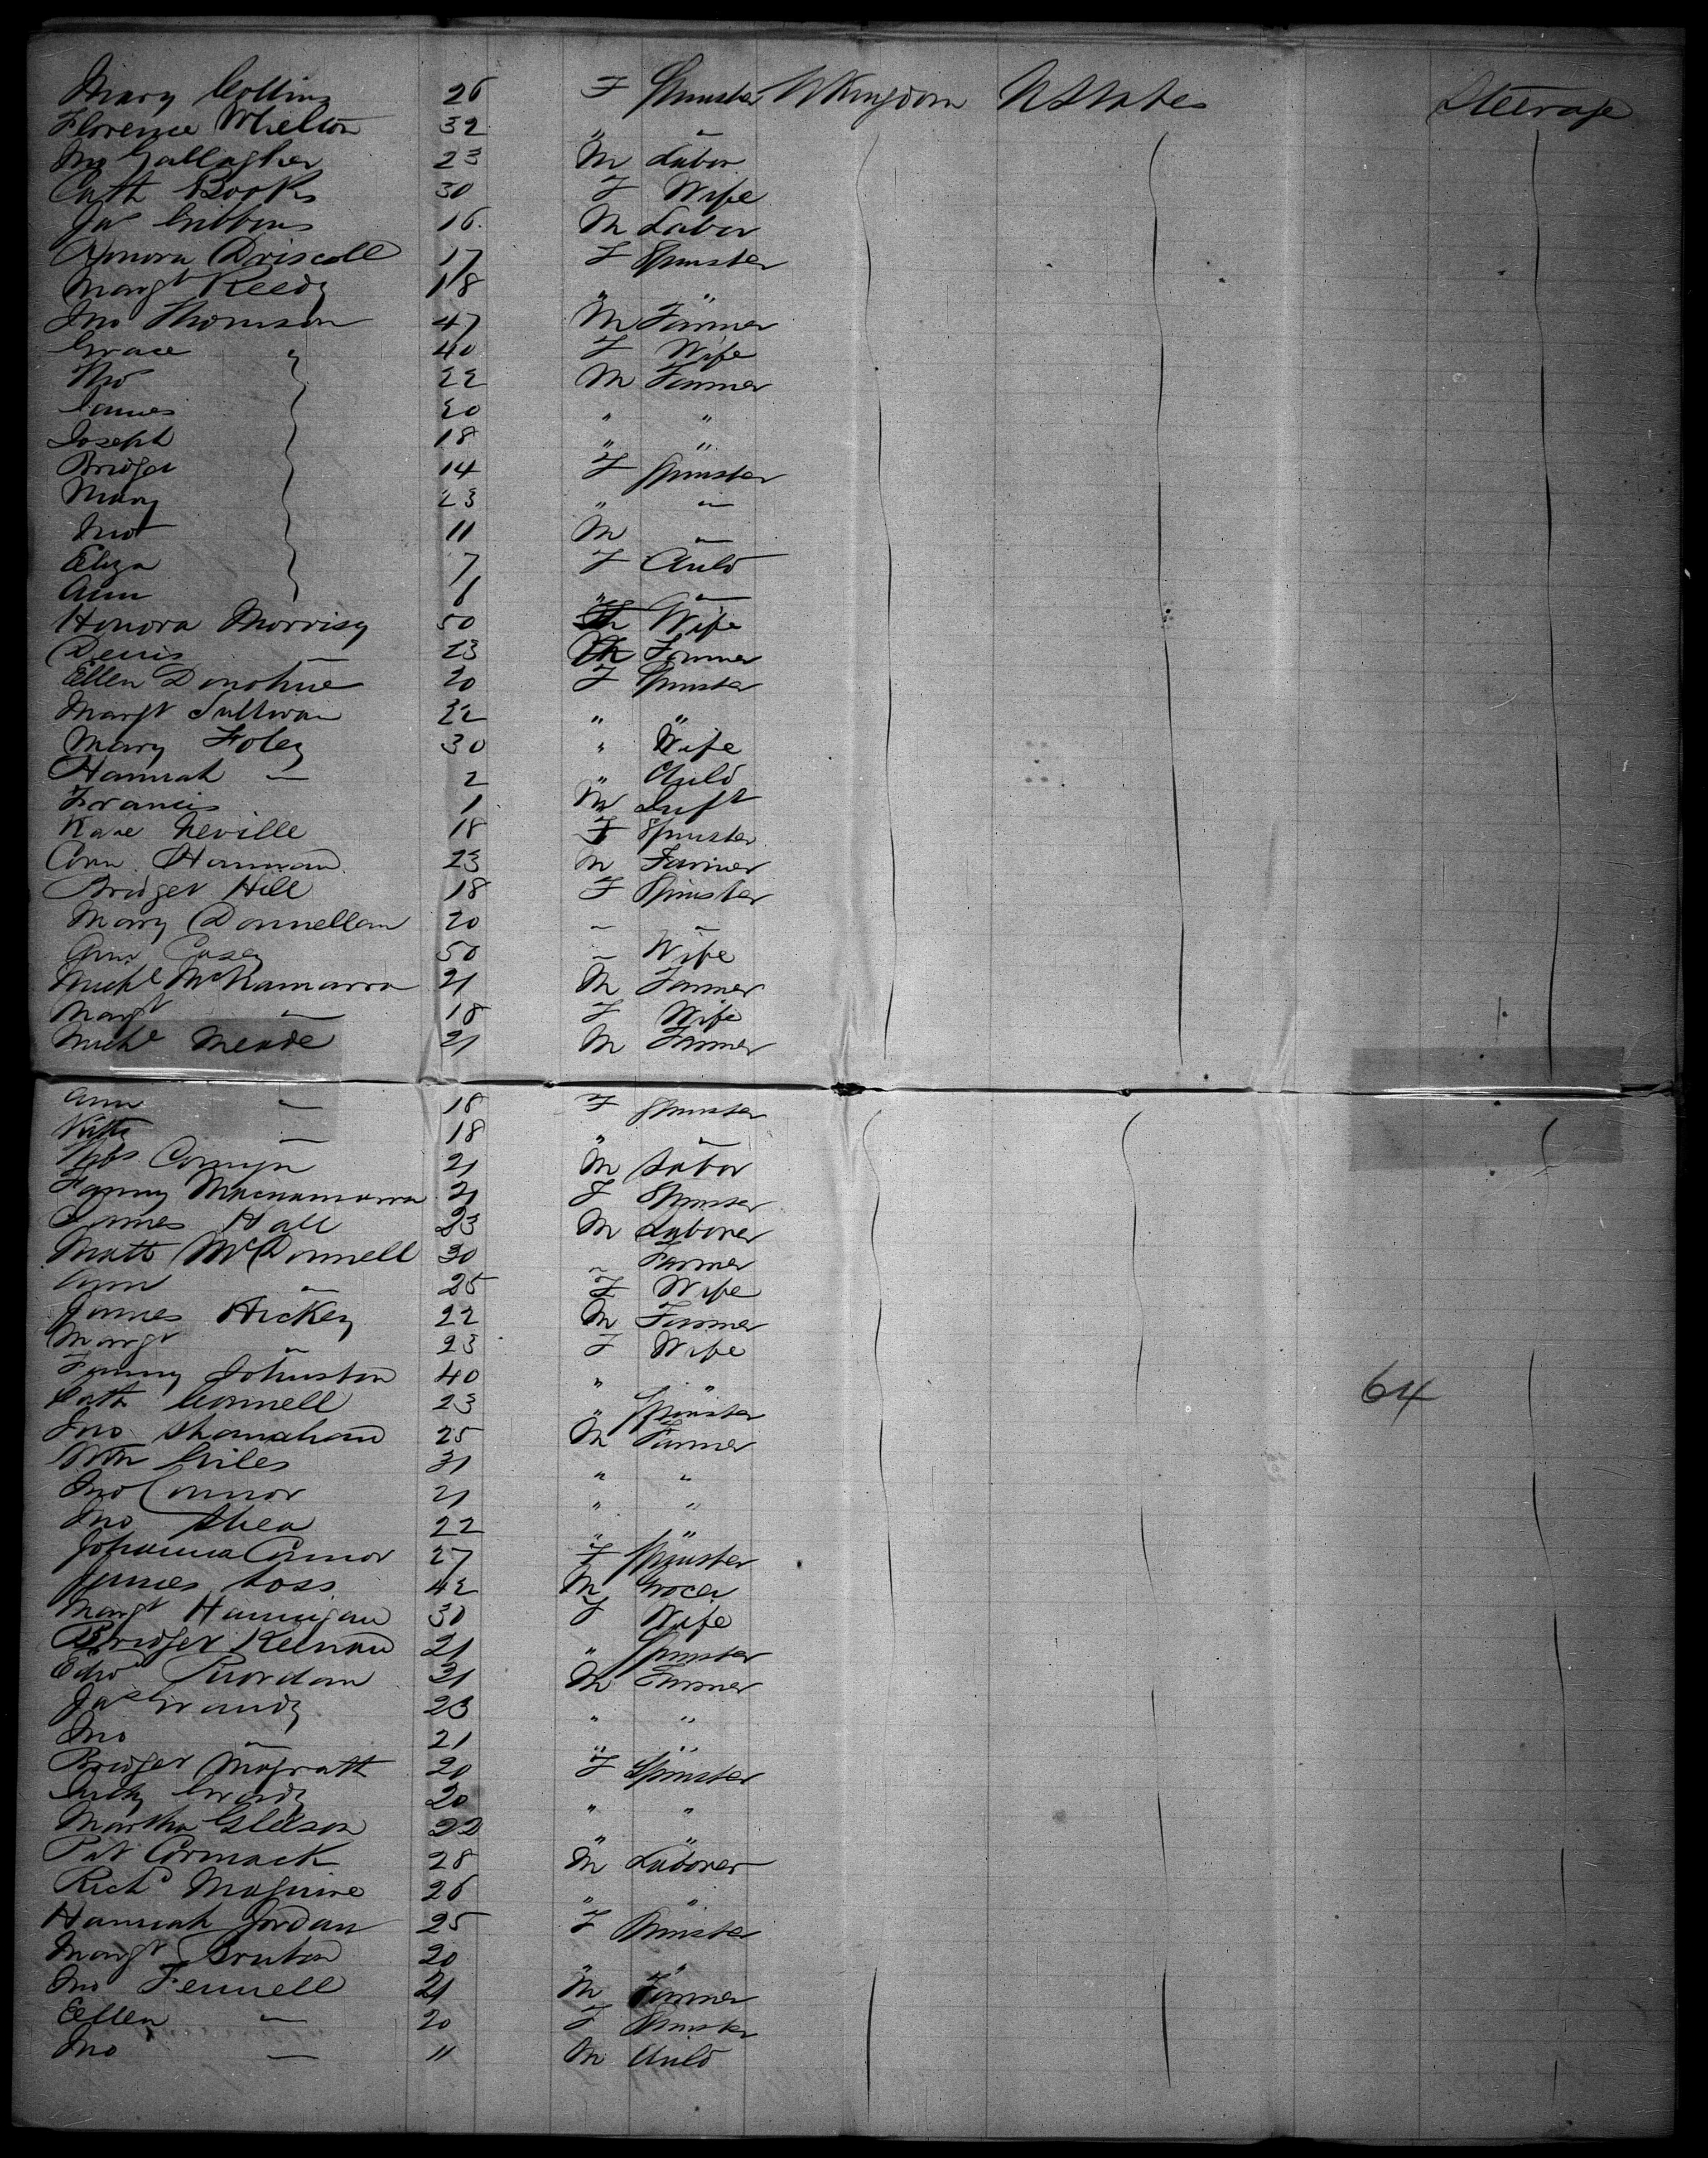 Mary Collins 26 F Spinster UKingdom UStates Steerage
Florence Whelton 32 " "
Jno Gallagher 23 M Labor
Cath Books 30 F Wife
Jas Gibbons 16 M Labor
Honora Driscoll 17 F Spinster
Margt Reedy 18 " "
Jno Thomson 47 M Farmer
Grace " 40 F Wife
Tho 22 M Farmer
James 20 " "
Joseph 18 " "
Bridget 14 F Spinster
Mary 23 " "
11 M "
Eliza 7 F Child
Ann 6 " "
Honora Morrisy 50 Wife
Denis — 23 M Farmer
Ellen Donohue 20 F Spinster
Margt Sullivan 22 " "
Mary Foley 30 " Wife
Hannah — 2 " Child
Francis 1 M Inft
Kate Neville 18 F Spinster
Corn Hannan 23 M Farmer
Bridget Hill 18 F Spinster
Mary Donnellan 20 " "
Ann Casey 50 " Wife
Michl McNamarra 21 M Farmer
Margt — 18 F Wife
Michl Meade 21 M Farmer
Ann — 18 F Spinster
Kitty — 18 " "
Thos Comyn 21 M Labor
Fanny Macnamarra 21 F Spinster
James Hall 23 M Laborer
Matt McDonnell 30 " Farmer
Ann " 25 F Wife
James Hickey 22 M Farmer
Margt " 23 F Wife
Fanny Johnston 40 " " 64
Cath Connell 23 " Spinster
Jno Shanahan 25 M Farmer
Wm Giles 31 " "
Jno Connor 21 " "
Jno Shea 22 " "
Johanna Connor 27 F Spinster
James Foss 42 M Grocer
Margt Hannigan 30 F Wife
Bridget Keenan 21 " Spinster
Edwd Riordan 31 M Farmer
Jas Grandy 23 " "
Jno — 21 " "
Bridget Magrath 20 F Spinster
Judy Grady 20 " "
Martha Gleeson 22 " "
Pat Cormack 28 M Laborer
Richd Maguire 26 " "
Hannah Jordan 25 F Spinster
Margt Bruton 20 " "
Jno Fennell 21 M Farmer
Ellen — 20 F Spinster
Jno — 11 M Child